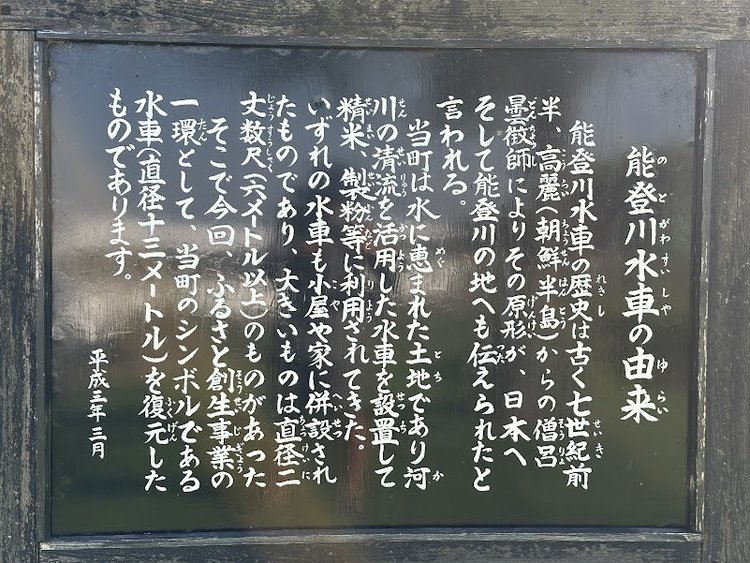 能登川水車の由来
能登川水車の歴史は古く七世紀前
半、高麗(朝鮮半島)からの僧呂
曇徴師によりその原形が、日本へ
そして能登川の地へも伝えられたと
言われる。
当町は水に恵まれた土地であり河
川の清流を活用した水車を設置して
精米、製粉等に利用されてきた。
いずれの水車も小屋や家に併設され
たものであり、大きいものは直径二
丈数尺(六メートル以上)のものがあった
そこで今回、ふるさと創生事業の
一環として、当町のシンボルである
水車(直径十三メートル)を復元した
ものであります。
平成三年三月